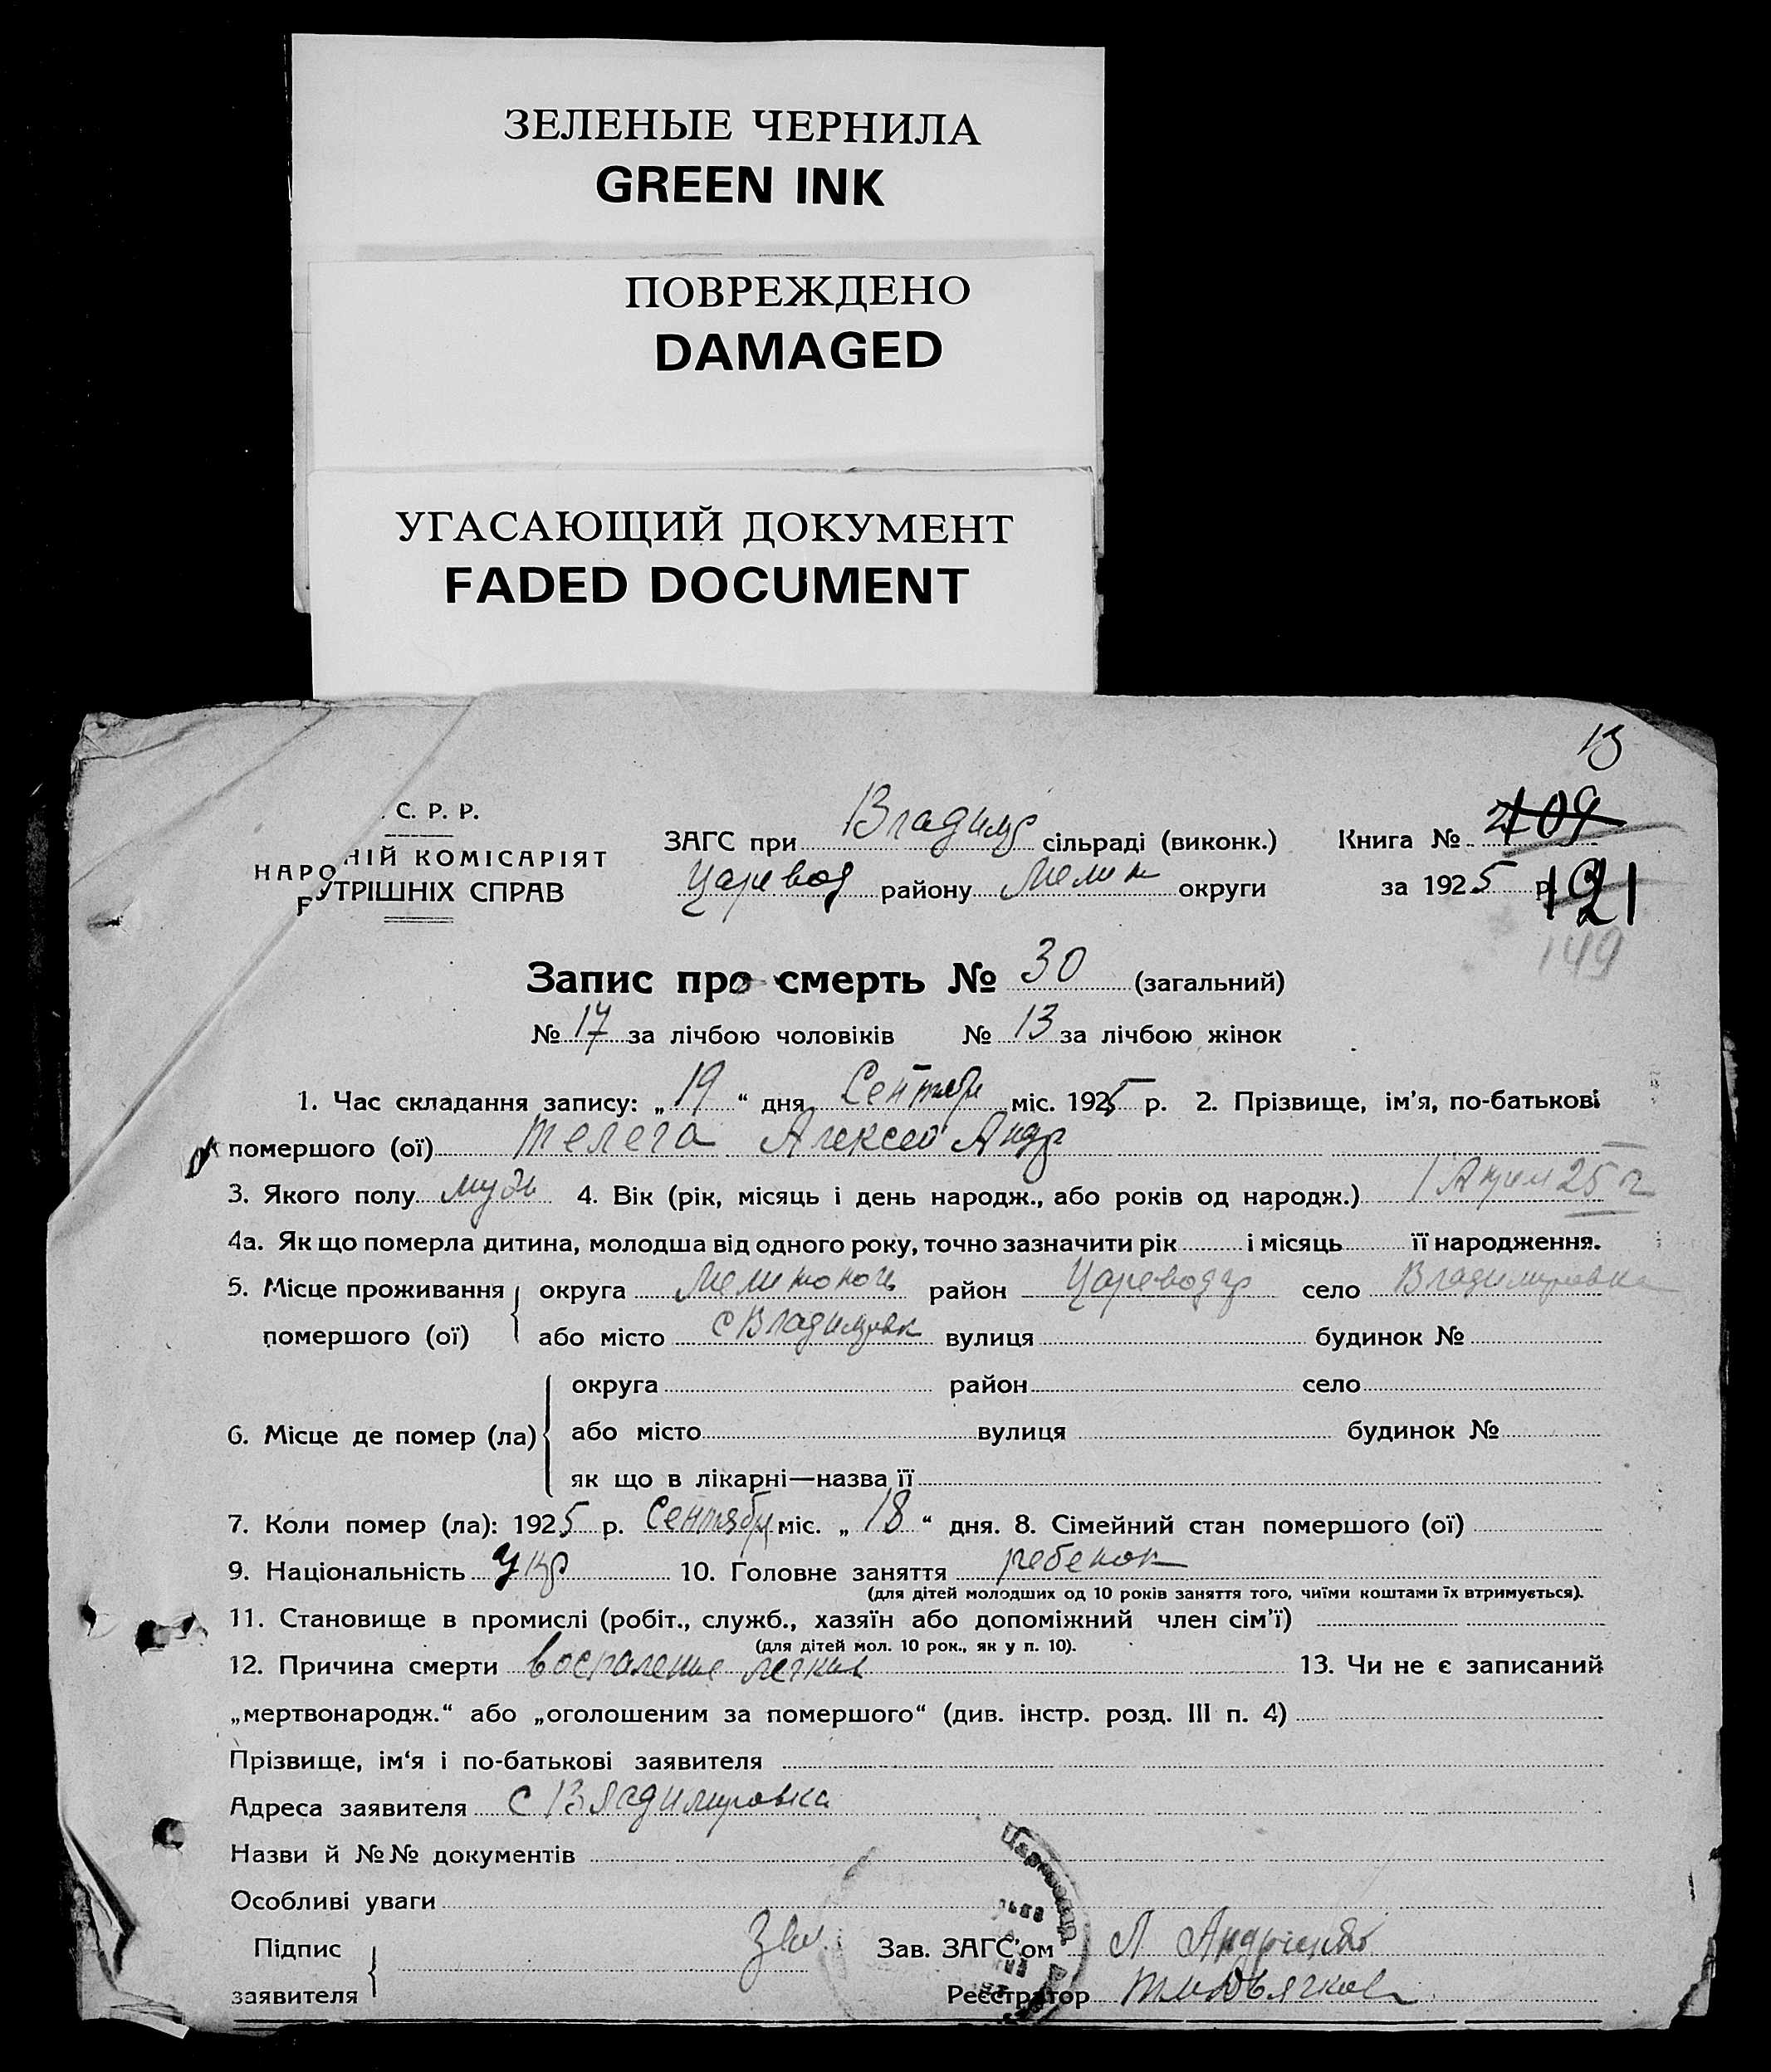 ЗЕЛЕНЫЕ ЧЕРНИЛА
GREEN INK
ПОВРЕЖДЕНО
DAMAGED
УГАСАЮЩИЙ ДОКУМЕНТ
FADED DOCUMENT
13
. С. Р. Р.
НАРО НІЙ КОМІСАРІЯТ
УТРІШНІХ СПРАВ
ЗАГС при Владимр сільраді (виконк.) Книга № 409
Царевод району Мелит округи за 1925 р. 121
149
Запис про смерть № 30 (загальний)
№ 17 за лічбою чоловіків № 13 за лічбою жінок
1. Час складання запису: „19“ дня Сентябр міс. 1925 р. 2. Прізвище, ім’я, по-батькові
помершого (ої) Телега Алексей Андр
3. Якого полу муж 4. Вік (рік, місяць і день народж., або років од народж.) 1 Апрел 25 г
4а. Як що померла дитина, молодша від одного року, точно зазначити рік і місяць її народження.
5. Місце проживання округа район Цареводар село Владимировка
помершого (ої) або місто с Владимровк вулиця будинок №
округа район село
6. Місце де помер (ла) або місто вулиця будинок №
як що в лікарні—назва її
7. Коли помер (ла): 1925 р. Сентябр міс. „18“ дня. 8. Сімейний стан помершого (ої)
9. Національність Укр 10. Головне заняття ребенок
(для дітей молодших од 10 років заняття того, чиїми коштами їх втримується).
11. Становище в промислі (робіт., служб., хазяїн або допоміжний член сім’ї)
(для дітей мол. 10 рок., як у п. 10).
12. Причина смерти воспаление легких 13. Чи не є записаний
„мертвонародж.“ або „оголошеним за помершого“ (див. інстр. розд. III п. 4)
Прізвище, ім’я і по-батькові заявителя
Адреса заявителя с Владимировка
Назви й №№ документів
Особливі уваги
Підпис Зав. ЗАГС’ом Л Андриенко
заявителя Реєстратор